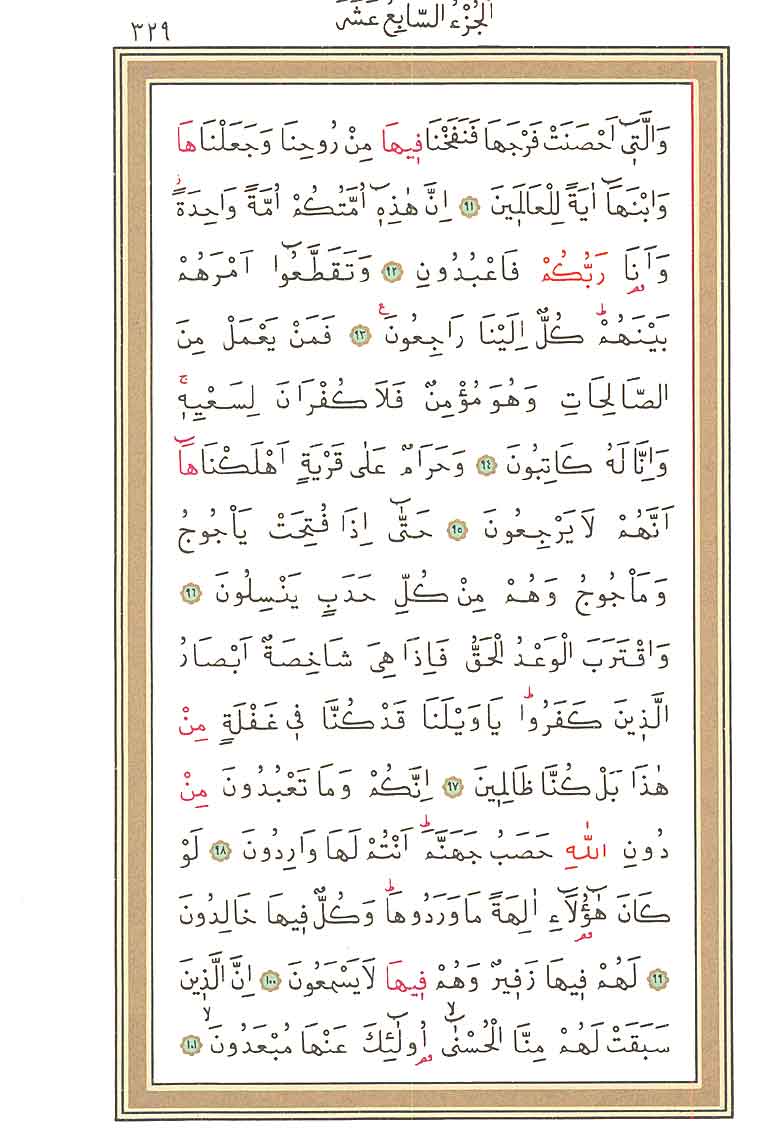 الجُزْءُ السَّابِعُ عَشَرَ
٣٢٩
وَالَّتٖٓي اَحْصَنَتْ فَرْجَهَا فَنَفَخْنَا فٖيهَا مِنْ رُوحِنَا وَجَعَلْنَاهَا
وَابْنَهَٓا اٰيَةً لِلْعَالَمٖينَ ٩١ اِنَّ هٰذِهٖٓ اُمَّتُكُمْ اُمَّةً وَاحِدَةًؗ
وَاَنَا۬ رَبُّكُمْ فَاعْبُدُونِ ٩٢ وَتَقَطَّعُٓوا اَمْرَهُمْ
بَيْنَهُمْؕ كُلٌّ اِلَيْنَا رَاجِعُونَࣖ ٩٣ فَمَنْ يَعْمَلْ مِنَ
الصَّالِحَاتِ وَهُوَ مُؤْمِنٌ فَلَا كُفْرَانَ لِسَعْيِهٖۚ
وَاِنَّا لَهُ كَاتِبُونَ ٩٤ وَحَرَامٌ عَلٰى قَرْيَةٍ اَهْلَكْنَاهَٓا
اَنَّهُمْ لَا يَرْجِعُونَ ٩٥ حَتّٰٓى اِذَا فُتِحَتْ يَاْجُوجُ
وَمَاْجُوجُ وَهُمْ مِنْ كُلِّ حَدَبٍ يَنْسِلُونَ ٩٦
وَاقْتَرَبَ الْوَعْدُ الْحَقُّ فَاِذَا هِيَ شَاخِصَةٌ اَبْصَارُ
الَّذٖينَ كَفَرُواؕ يَا وَيْلَنَا قَدْ كُنَّا فٖي غَفْلَةٍ مِنْ
هٰذَا بَلْ كُنَّا ظَالِمٖينَ ٩٧ اِنَّكُمْ وَمَا تَعْبُدُونَ مِنْ
دُونِ اللّٰهِ حَصَبُ جَهَنَّمَؕ اَنْتُمْ لَهَا وَارِدُونَ ٩٨ لَوْ
كَانَ هٰٓؤُ۬لَٓاءِ اٰلِهَةً مَا وَرَدُوهَاؕ وَكُلٌّ فٖيهَا خَالِدُونَ
٩٩ لَهُمْ فٖيهَا زَفٖيرٌ وَهُمْ فٖيهَا لَا يَسْمَعُونَ ١٠٠ اِنَّ الَّذٖينَ
سَبَقَتْ لَهُمْ مِنَّا الْحُسْنٰٓىۙ اُو۬لٰٓئِكَ عَنْهَا مُبْعَدُونَۙ ١٠١